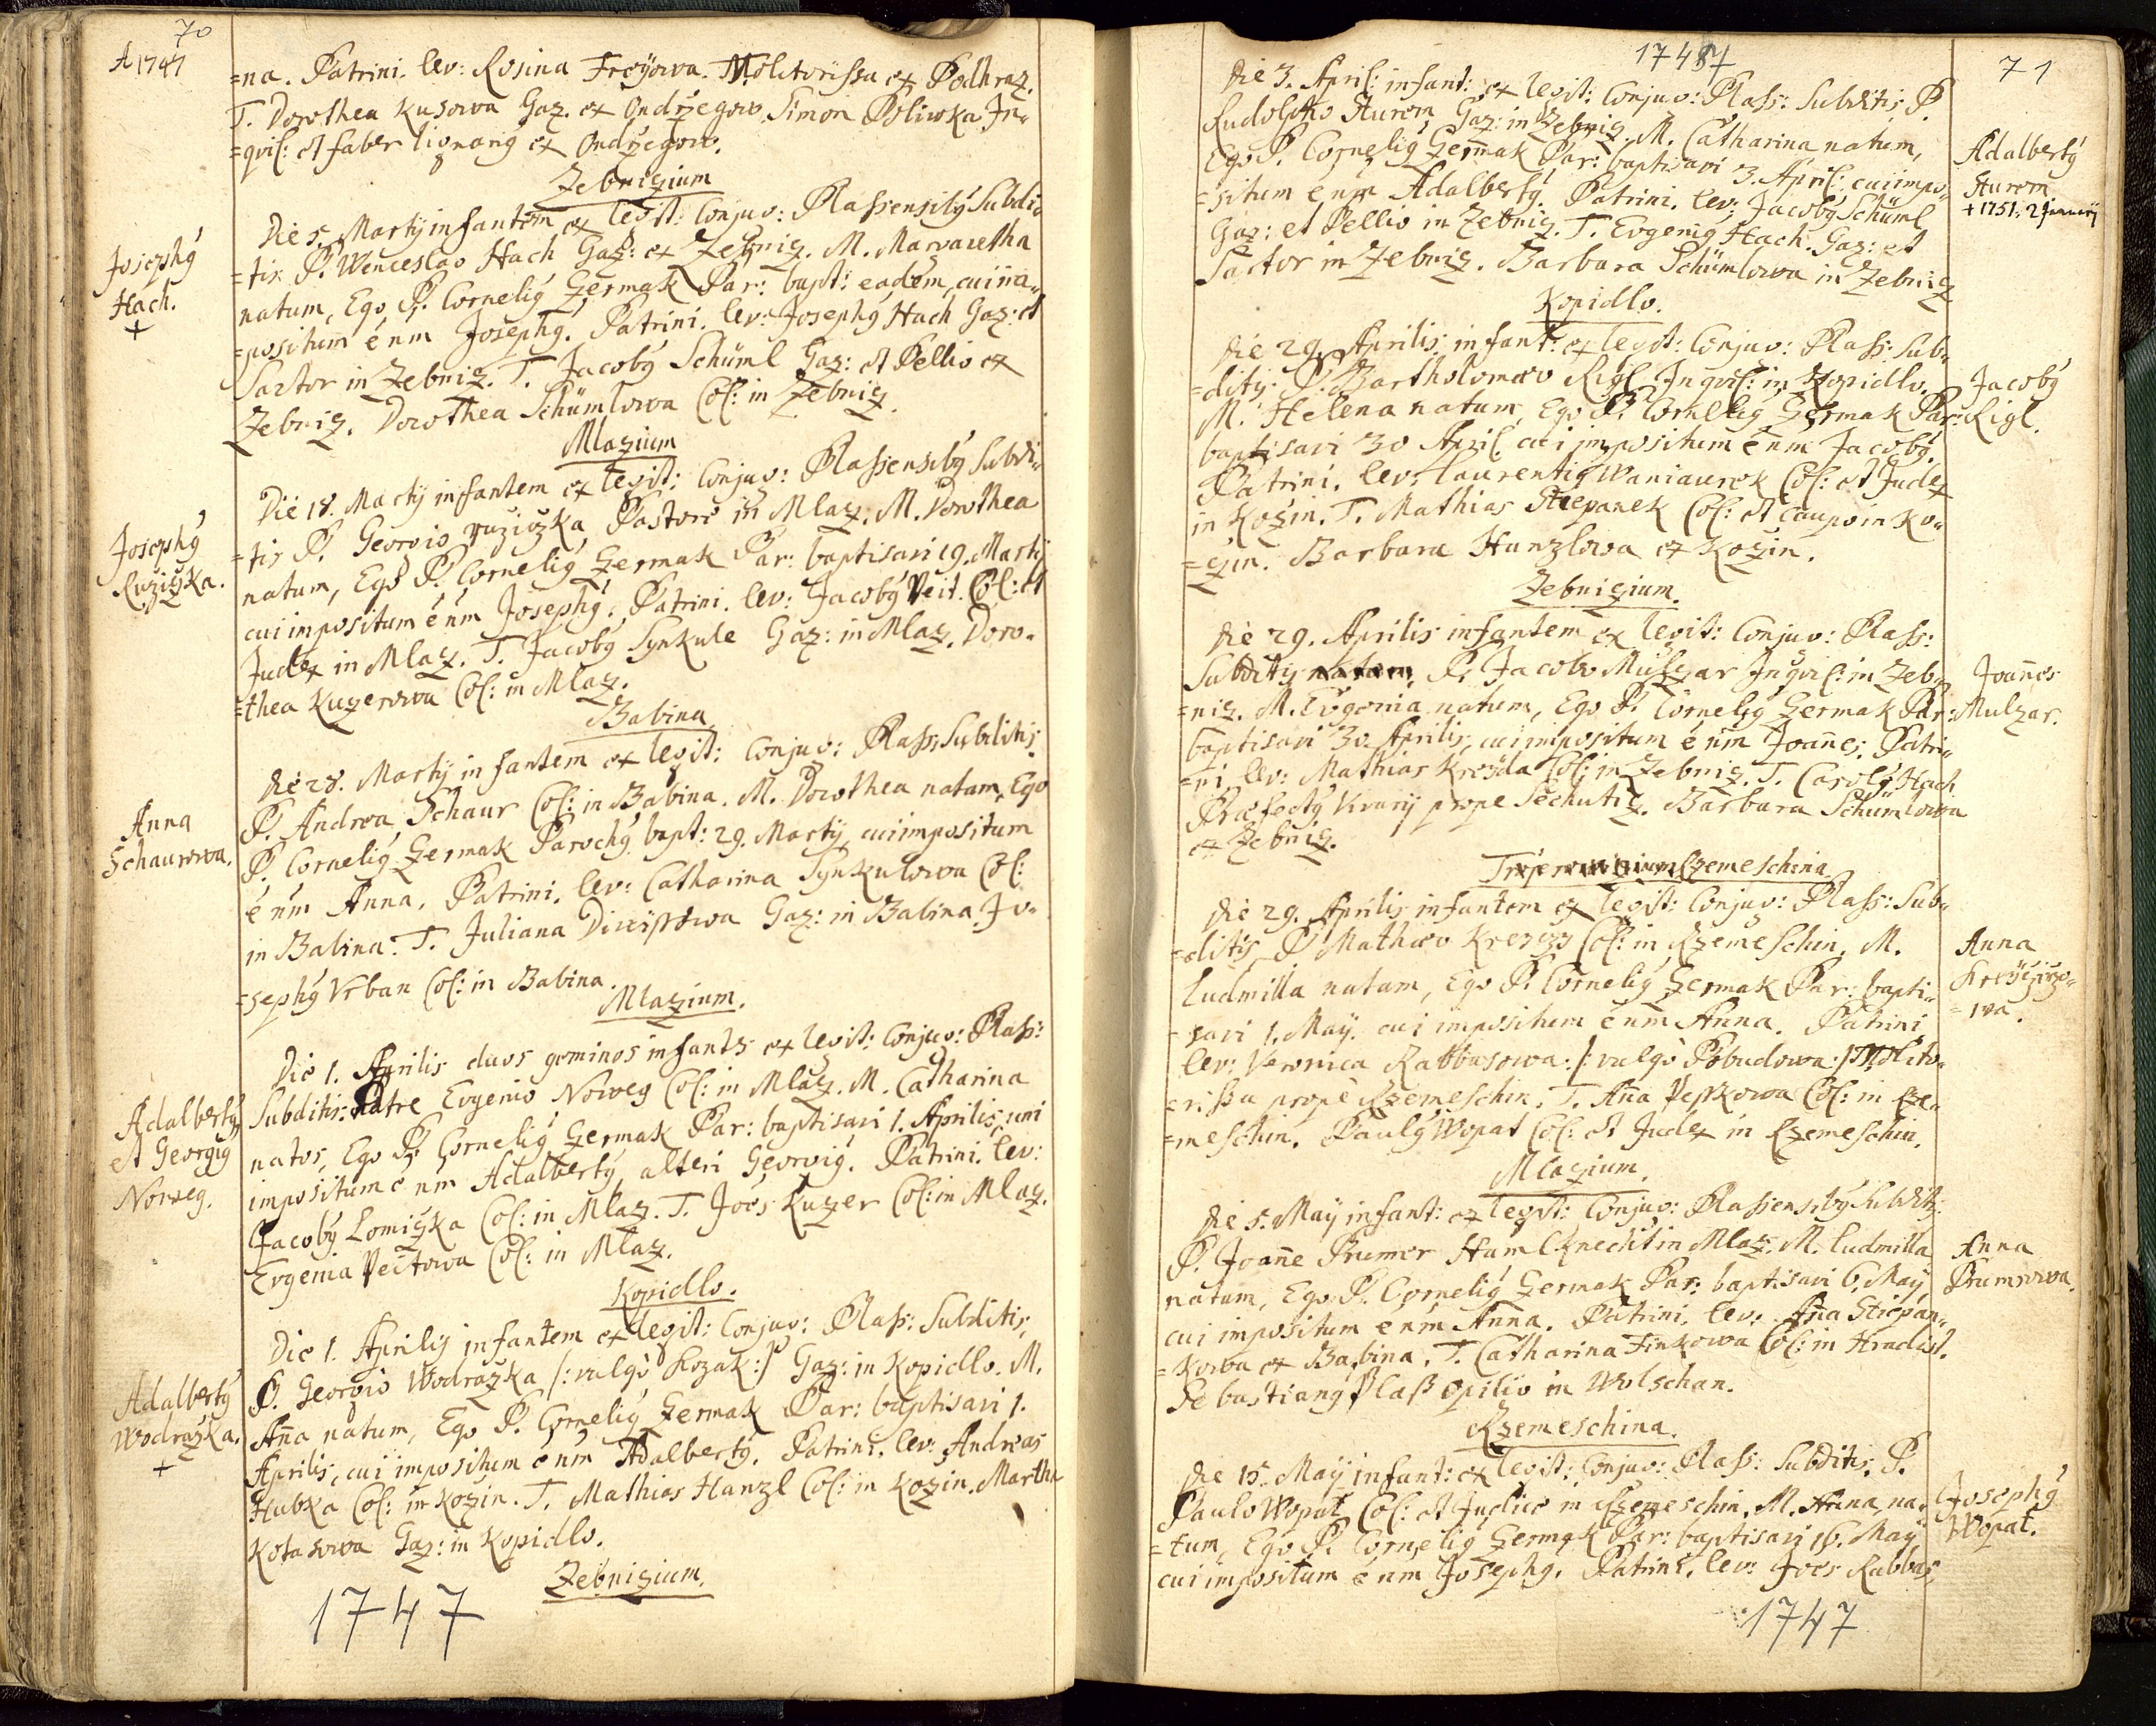 70
A 1747
=na. Patrini. lev: Rosina Freÿowa. Molitorissa ex Podhraz.
T. Dorothea Kusowa Gaz. ex Ondrzegow. Simon Poliwka In=
=qvil: et faber lignarig ex Ondrzegow.
Zebnizium
Die 5. Martÿ infantem ex legit: Conjug: Plassensibg Subdi=
=tis P. Wenceslao Hach Gaz: ex Zebniz. M. Margaretha
natum, Ego P. Cornelig Zermak Par: bapt: eadem, cui
=positum é nm Josephg. Patrini. lev: Josephg Hach Gaz: et
Sartor in Zebniz. T. Jacobg Schüml Gaz: et Pellio ex
Zebniz. Dorothea Schümlowa Col: in Zebniz.
Josephg
Hach.
+
Mlazium
Die 18. Martÿ infantem ex legit: Conjug: Plassensibg Subdi=
=tis P. Georgio ruziczka Pastore in Mlaz. M. Dorothea
natum, Ego P. Cornelig Zermak Par: baptisavi 19. Martÿ
cui impositum é nm Josephg. Patrini. lev: Jacobg Veit. Col: et
Judex in Mlaz. T. Jacobg Synkule Gaz: in Mlaz. Doro=
=thea Kuzerowa Col: in Mlaz.
Josephg
Ruziczka.
Babina
Die 28. Martÿ infantem ex legit: Conjug: Plass: Subditis
P. Andrea Schaur Col: in Babina. M. Dorothea natam, Ego
P. Cornelig Zermak Parochg bapt: 29. Martÿ, cui impositum
é nm Anna. Patrini. lev: Catharina Synkulowa Col:
in Babina. T. Juliana Gaz: in Babina. Jo=
=sephg Vrban Col: in Babina.
Anna
Schaurowa.
Mlazium.
Die 1. Aprilis duos geminos infants ex legit: Conjug: Plass:
Subditis: Patre Evgenio Norweg Col: in Mlaz. M. Catharina
natos, Ego P. Cornelig Zermak Par: baptisavi 1. Aprilis, uni
impositum é nm Adalbertg, alteri Georgig. Patrini. lev:
Jacobg Lomiczka Col: in Mlaz. T. Joes Kuzer Col: in Mlaz.
Evgenia Veitowa Col: in Mlaz.
Adalbertg
et Georgig
Norweg.
Kopidlo.
Die 1. Aprilis infantem ex legit: Conjug: Plass: Subditis,
P. Georgio Wodrazka /: vulgò Kozak:/ Gaz: in Kopidlo. M.
Aña natum, Ego P. Cornelig Zermak Par: baptisavi 1.
Aprilis, cui impositum é nm Adalbertg. Patrini. lev: Andreas
Hubka Col: in Kozin. T. Mathias Hanzl Col: in Kozin. Martha
Kotasowa Gaz: in Kopidlo.
Adalbertg
Wodrazka.
+
Zebnizium.
1747
1747
71
Die 3. April: infant: ex legit: Conjug: Plass: Subditis P.
Rudolpho Gaz: in Zebniz. M. Catharina natum,
Ego P. Cornelig Zermak Par: baptisavi 3. April: cui impo=
=situm é nm Adalbertg. Patrini. lev: Jacobg Schüml
Gaz: et Pellio in Zebniz. T. Evgenig Hach. Gaz: et
Sartor in Zebniz. Barbara Schümlowa in Zebniz
Adalbertg
+ 1751. 2 Januarÿ
Kopidlo.
Die 29. Aprilis infant: ex legit: Conjug: Plass: Sub=
=ditis P. Bartholomæo Rigl Inqvil: in Kopidlo.
M. Helena natum, Ego P. Cornelig Zermak Par:
baptisavi 30 April. cui impositum é nm Jacobg.
Patrini. lev: Laurentig Waniaurek Col: et Judex
in Kozin. T. Mathias Stiepanek Col: et Caupo in Ko=
=zin. Barbara Hanzlowa ex Kozin.
Jacobg
Rigl.
Zebnizium.
Die 29. Aprilis infantem ex legit: Conjug: Plass:
Subditis P. Jacobo Mulzar Inqvil: in Zeb=
=niz. M. Evgenia natum, Ego P. Cornelig Zermak Par:
baptisavi 30. Aprilis, cui impositum é nm Joañes. Patri=
=ni. lev: Mathias Kreÿda Col: in Zebniz. T. Carolg Hach
Præfectg prope Sechutiz. Barbara Schümlowa
ex Zebniz.
Joañes
Mulzar.
Rzemeschina
Die 29. Aprilis infantem ex legit: Conjug: Plass: Sub=
=ditis P. Mathæo Col: in Rzemeschin. M.
Ludmilla natam, Ego P. Cornelig Zermak Par: bapti=
=savi 1. Maÿ. cui impositum é nm Anna. Patrini
lev: Veronica Rabbasowa: /: vulgò Pobudowa :/ Molito=
=rissa prope Rzemeschin. T. Aña Peskowa Col: in Rze=
=meschin. Paulg Wopat Col: et Judex in Rzemeschin.
Anna
=wa.
Mlazium.
Die 5. Maÿ infant: ex legit: Conjug: Plassensibg Subditis
P. Joañe Prumer Hamlknecht in Mlaz. M. Ludmilla
natam, Ego P. Cornelig Zermak Par: baptisavi 6. Maÿ
cui impositum é nm Anna. Patrini. lev: Aña Stiepan=
=kowa ex Babina. T. Catharina Finkowa Col: in Hradist.
Sebastiang Plass Opilio in Wolschan.
Anna
Prumrowa.
Rzemeschina.
Die 15. Maÿ infant: ex legit: Conjug: Plass: Subditis. P.
Paulo Wopat Col: et Judice in Rzemeschin. M. Anna na=
=tum, Ego P. Cornelig Zermak Par: baptisavi 16. Maÿ
cui impositum é nm Josephg. Patrini. lev: Joes Rabbas
Josephg
Wopat.
1747